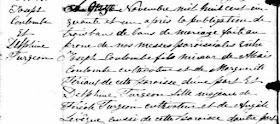 Joseph
Coulombe
Et
Delphine
Turgeon
Le Onze Novembre mil huit cent cin-
quante et un après la publication de
trois bans de mariage fait au
prone de nos messes paroissiales entre
Joseph Coulombe fils mineur de
Coulombe cultivateur et de Marguerite
de cette paroisse d'une part Et
Delphine Turgeon fille mineure de
Turgeon cultivateur et de
Lévêque aussi de cette paroisse d'autre part